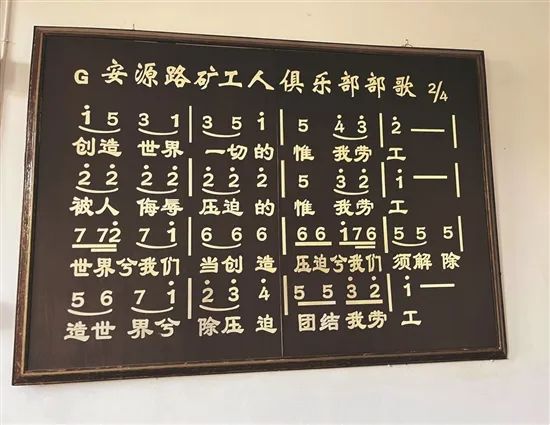 G 安源路矿工人俱乐部部歌 2/4
1̇ 5 3 1 | 3 5 1̇ | 5 4̇ 3̇ | 2̇ —— |
创造 世界 一切的 惟 我劳 工
2̇ 2̇ 2̇ 2̇ | 2̇ 2̇ 2̇ | 5 3̇ 2̇ | 1̇ —— |
被人 侮辱 压迫的 惟 我劳 工
7 72̇ 7 1̇ | 6 6 6 | 6 6 1̇76 | 5 5 5 |
世界兮我们 当创造 压迫兮我们 须解除
5 6 7 1̇ | 2̇ 3̇ 4̇ | 5 5 3̇ 2̇ | 1̇ —— |
造世界兮 除压迫 团结我劳 工